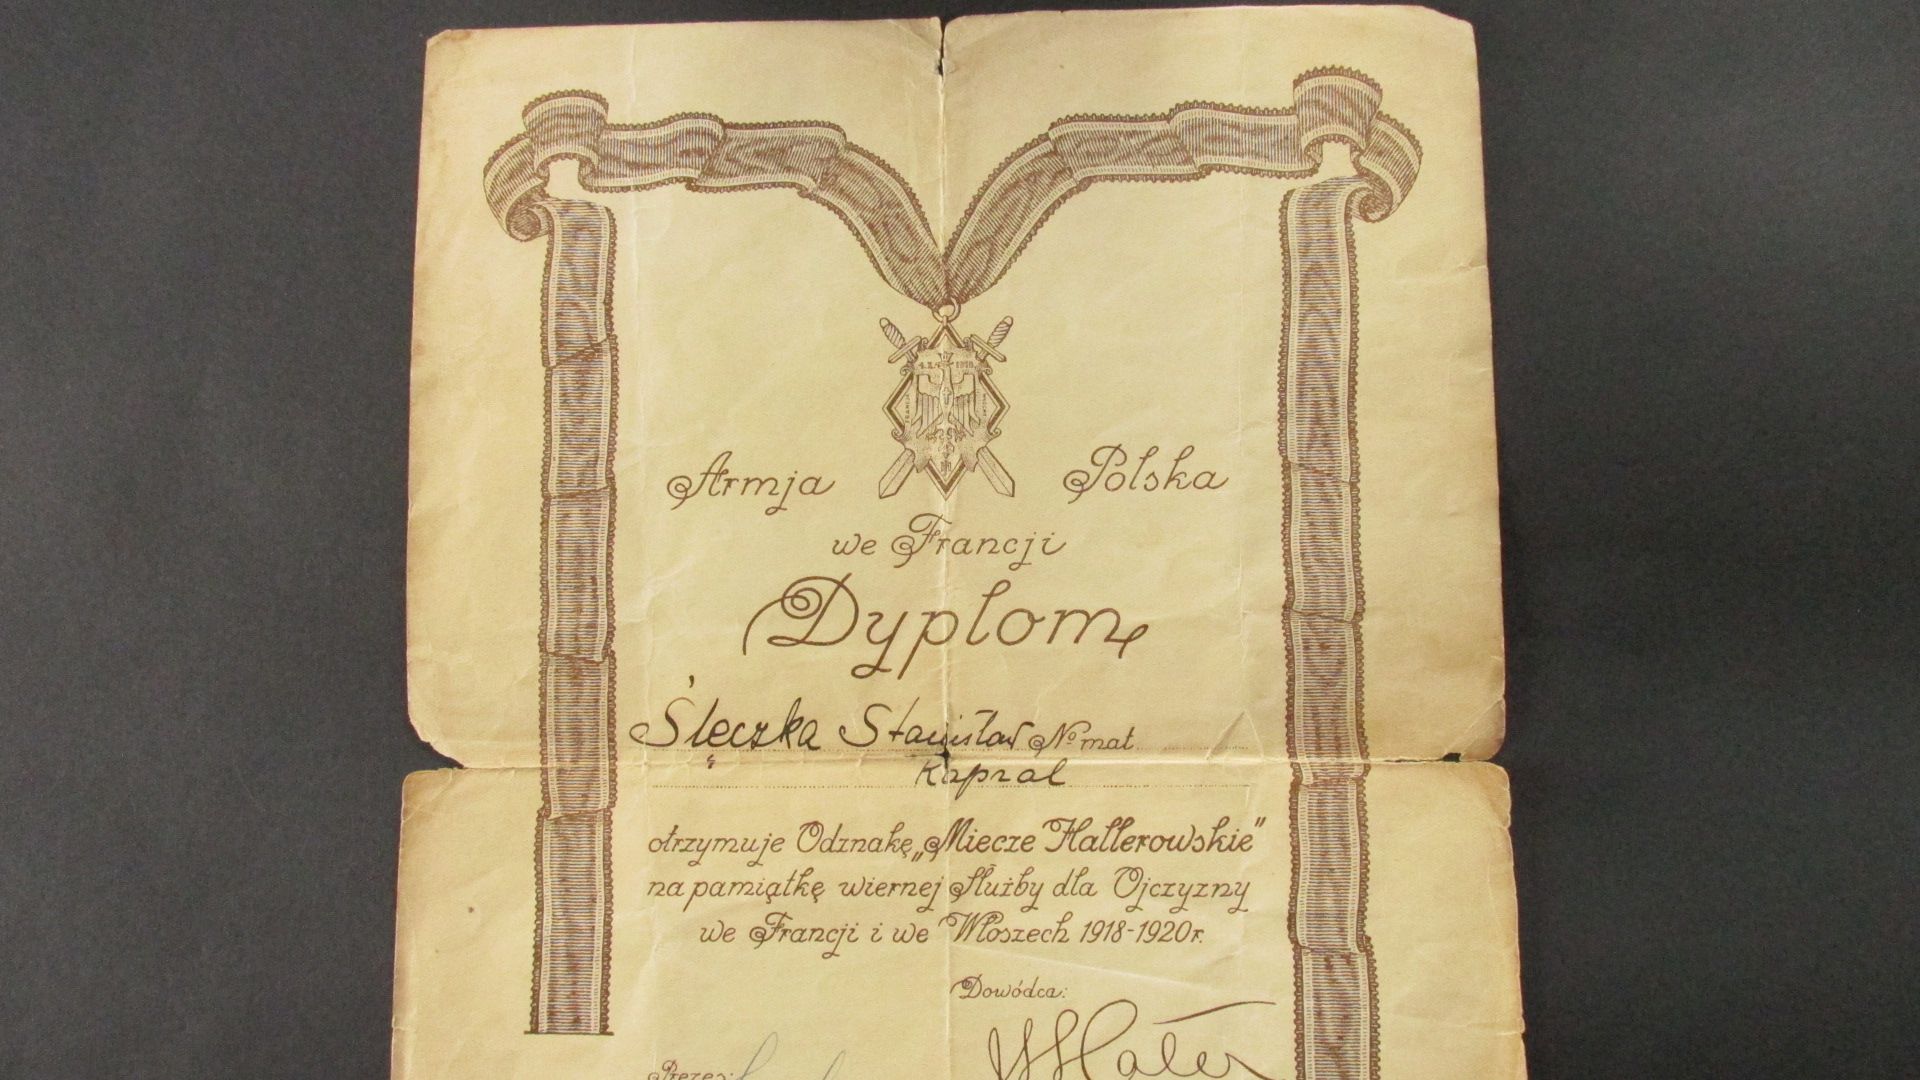 Armja Polska
we Francji
Dyplom
Ślęczka Stanisław No mat
Kapral
otrzymuje Odznakę „Miecze Hallerowskie"
na pamiątkę wiernej Służby dla Ojczyzny
we Francji i we Włoszech 1918-1920r.
Dowódca:
Haller
Prezes: